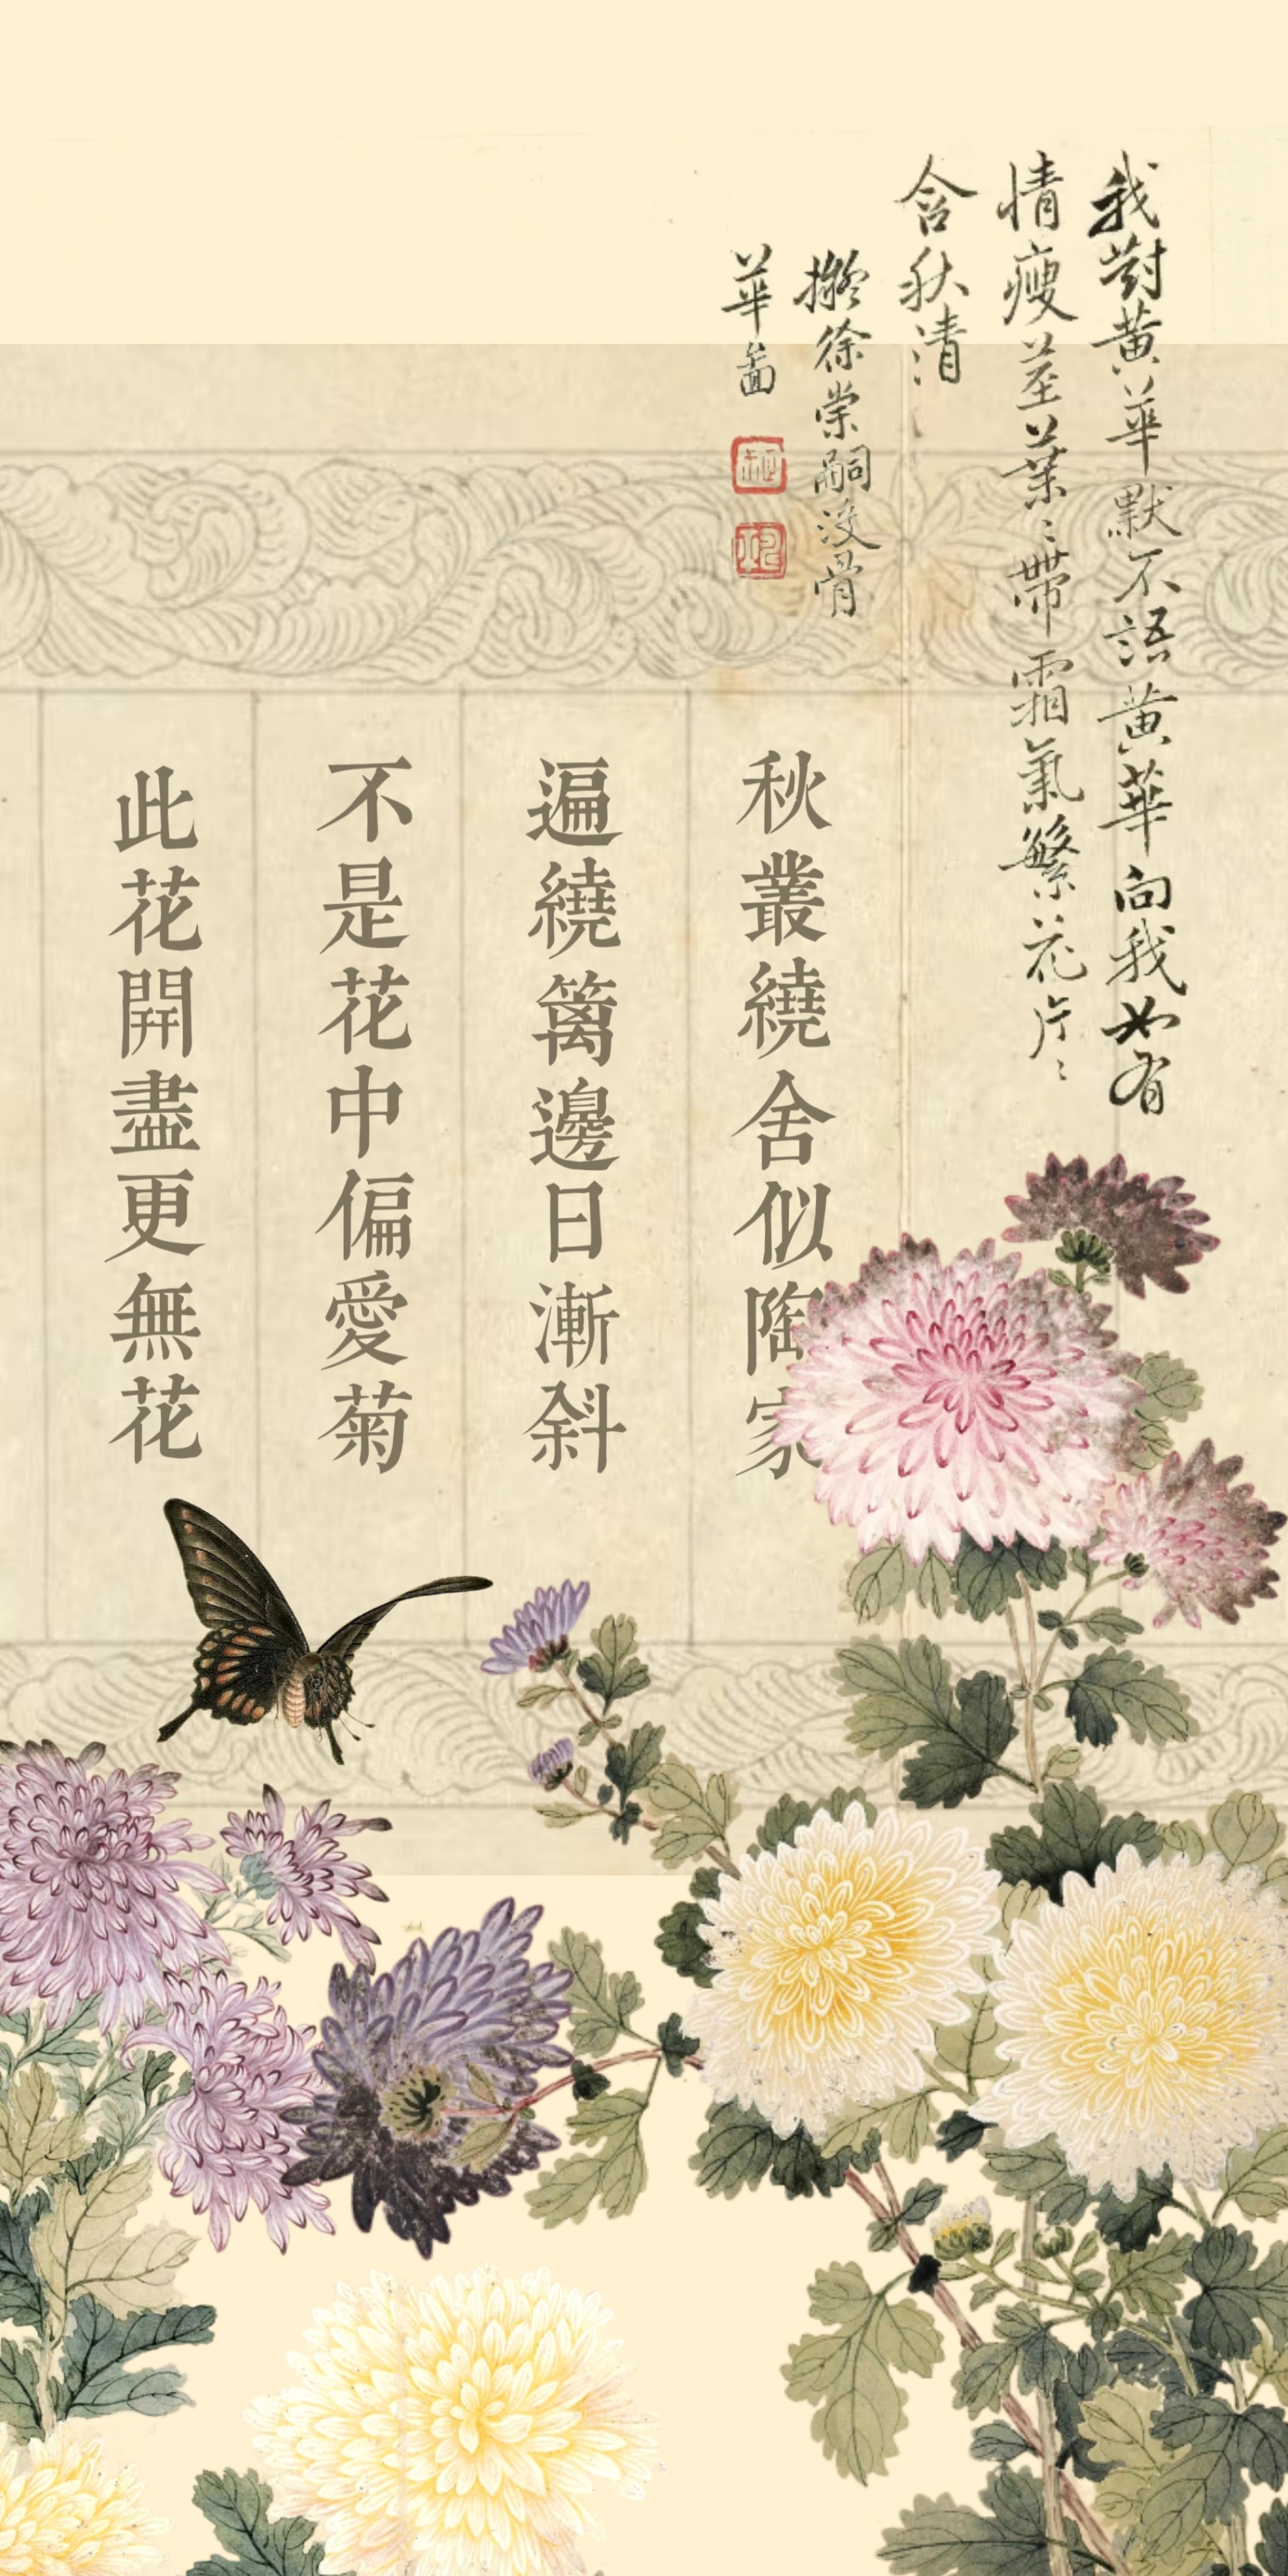 我對黃華默不語黃華向我如有
情瘦莖葉〻帶霜氣繁花片〻
含秋清
擬徐崇嗣沒骨
華啚
秋叢繞舍似陶家
遍繞籬邊日漸斜
不是花中偏愛菊
此花開盡更無花